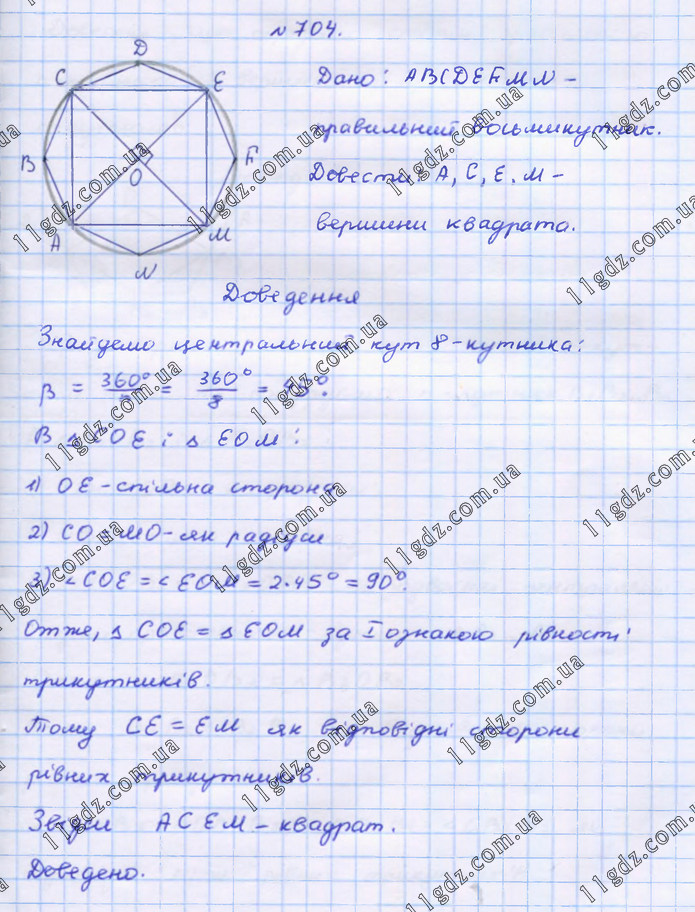 № 704.
D
C
E
Дано: ABCDEFMN -
правильний восьмикутник.
B
F
O
Довести: A, C, E, M -
вершини квадрата.
A
M
N
Доведення
Знайдемо центральний кут 8-кутника:
β = 360° = 360°/8 = 45°.
В △ COE і △ EOM:
1) OE - спільна сторона
2) CO = MO - як радіуси
3) ∠COE = ∠EOM = 2·45° = 90°.
Отже, △ COE = △ EOM за I ознакою рівності
трикутників.
Тому CE = EM як відповідні сторони
рівних трикутників.
Звідси ACEM - квадрат.
Доведено.
11gdz.com.ua